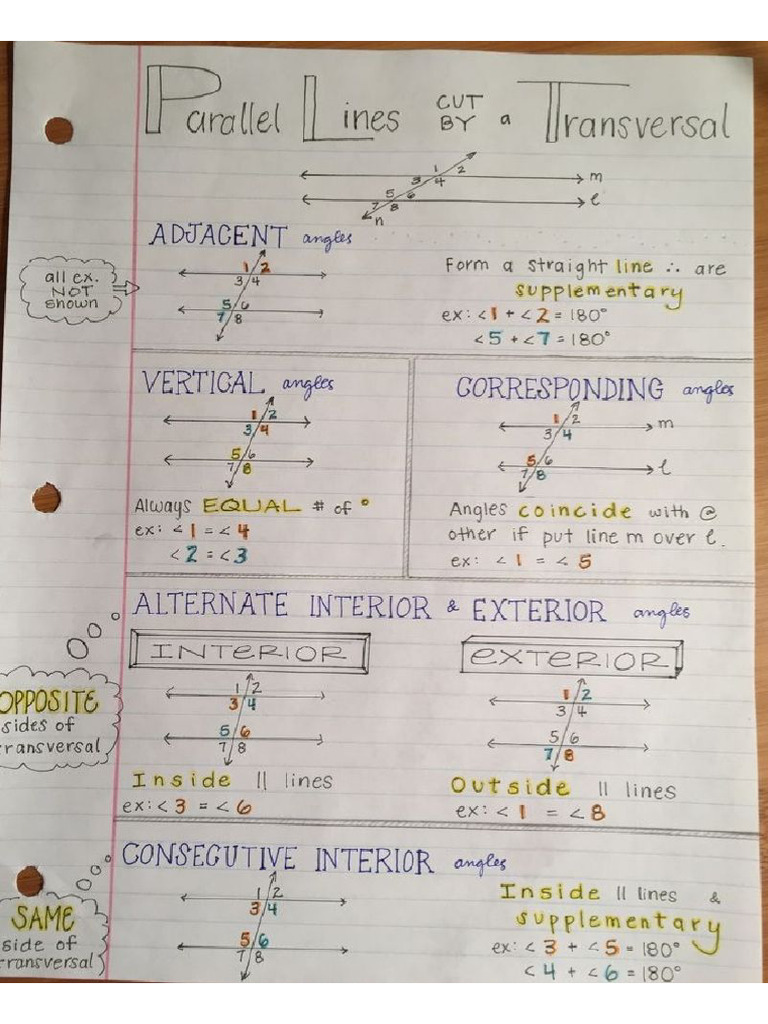 Parallel Lines CUT BY a Transversal
1 2
3 4
m
5 6
7 8
l
n
ADJACENT angles
all ex.
NOT
shown
1 2
3 4
5 6
7 8
Form a straight line ∴ are
supplementary
ex: <1 + <2 = 180°
<5 + <7 = 180°
VERTICAL angles
1 2
3 4
5 6
7 8
Always EQUAL # of °
ex: <1 = <4
<2 = <3
CORRESPONDING angles
1 2
m
3 4
5 6
l
7 8
Angles coincide with @
other if put line m over l.
ex: <1 = <5
ALTERNATE INTERIOR & EXTERIOR angles
OPPOSITE
sides of
transversal
INTERIOR
1 2
3 4
5 6
7 8
Inside || lines
ex: <3 = <6
EXTERIOR
1 2
3 4
5 6
7 8
Outside || lines
ex: <1 = <8
CONSECUTIVE INTERIOR angles
SAME
side of
transversal
1 2
3 4
5 6
7 8
Inside || lines &
supplementary
ex: <3 + <5 = 180°
<4 + <6 = 180°